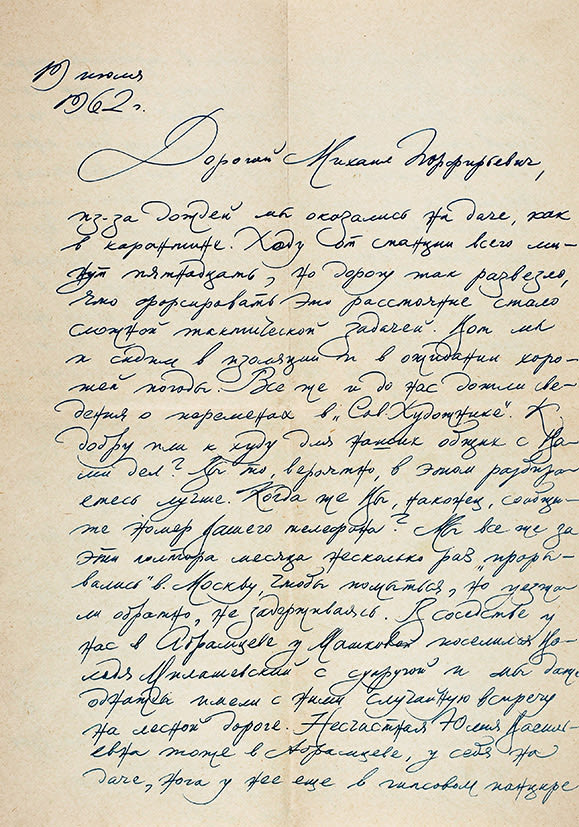 19 июля
1962 г.
Дорогой Михаил Порфирьевич,
из-за дождей мы оказались на даче, как
в карантине. Ходу от станции всего ми-
нут пятнадцать, но дорогу так развезло,
что форсировать это расстояние стало
сложной тактической задачей. Вот мы
и сидим в изоляции и в ожидании хоро-
шей погоды. Все же и до нас дошли све-
дения о переменах в „Сов.Художнике". К
добру или к худу для наших общих с Ва-
ми дел? Вы то, вероятно, в этом разбира-
етесь лучше. Когда же Вы, наконец, сообщи-
те номер Вашего телефона? Мы все же за
эти полтора месяца несколько раз „проры-
вались" в Москву, чтобы помыться, но уезжа-
ли обратно, не задерживаясь. В соседстве у
нас в Абрамцеве у Машковой поселился Во-
лодя Милашевский с супругой и мы даже
однажды имели с ними случайную встречу
на лесной дороге. Несчастная Юлия Василь-
евна тоже в Абрамцеве, у себя на
даче, нога у нее еще в гипсовом панцире